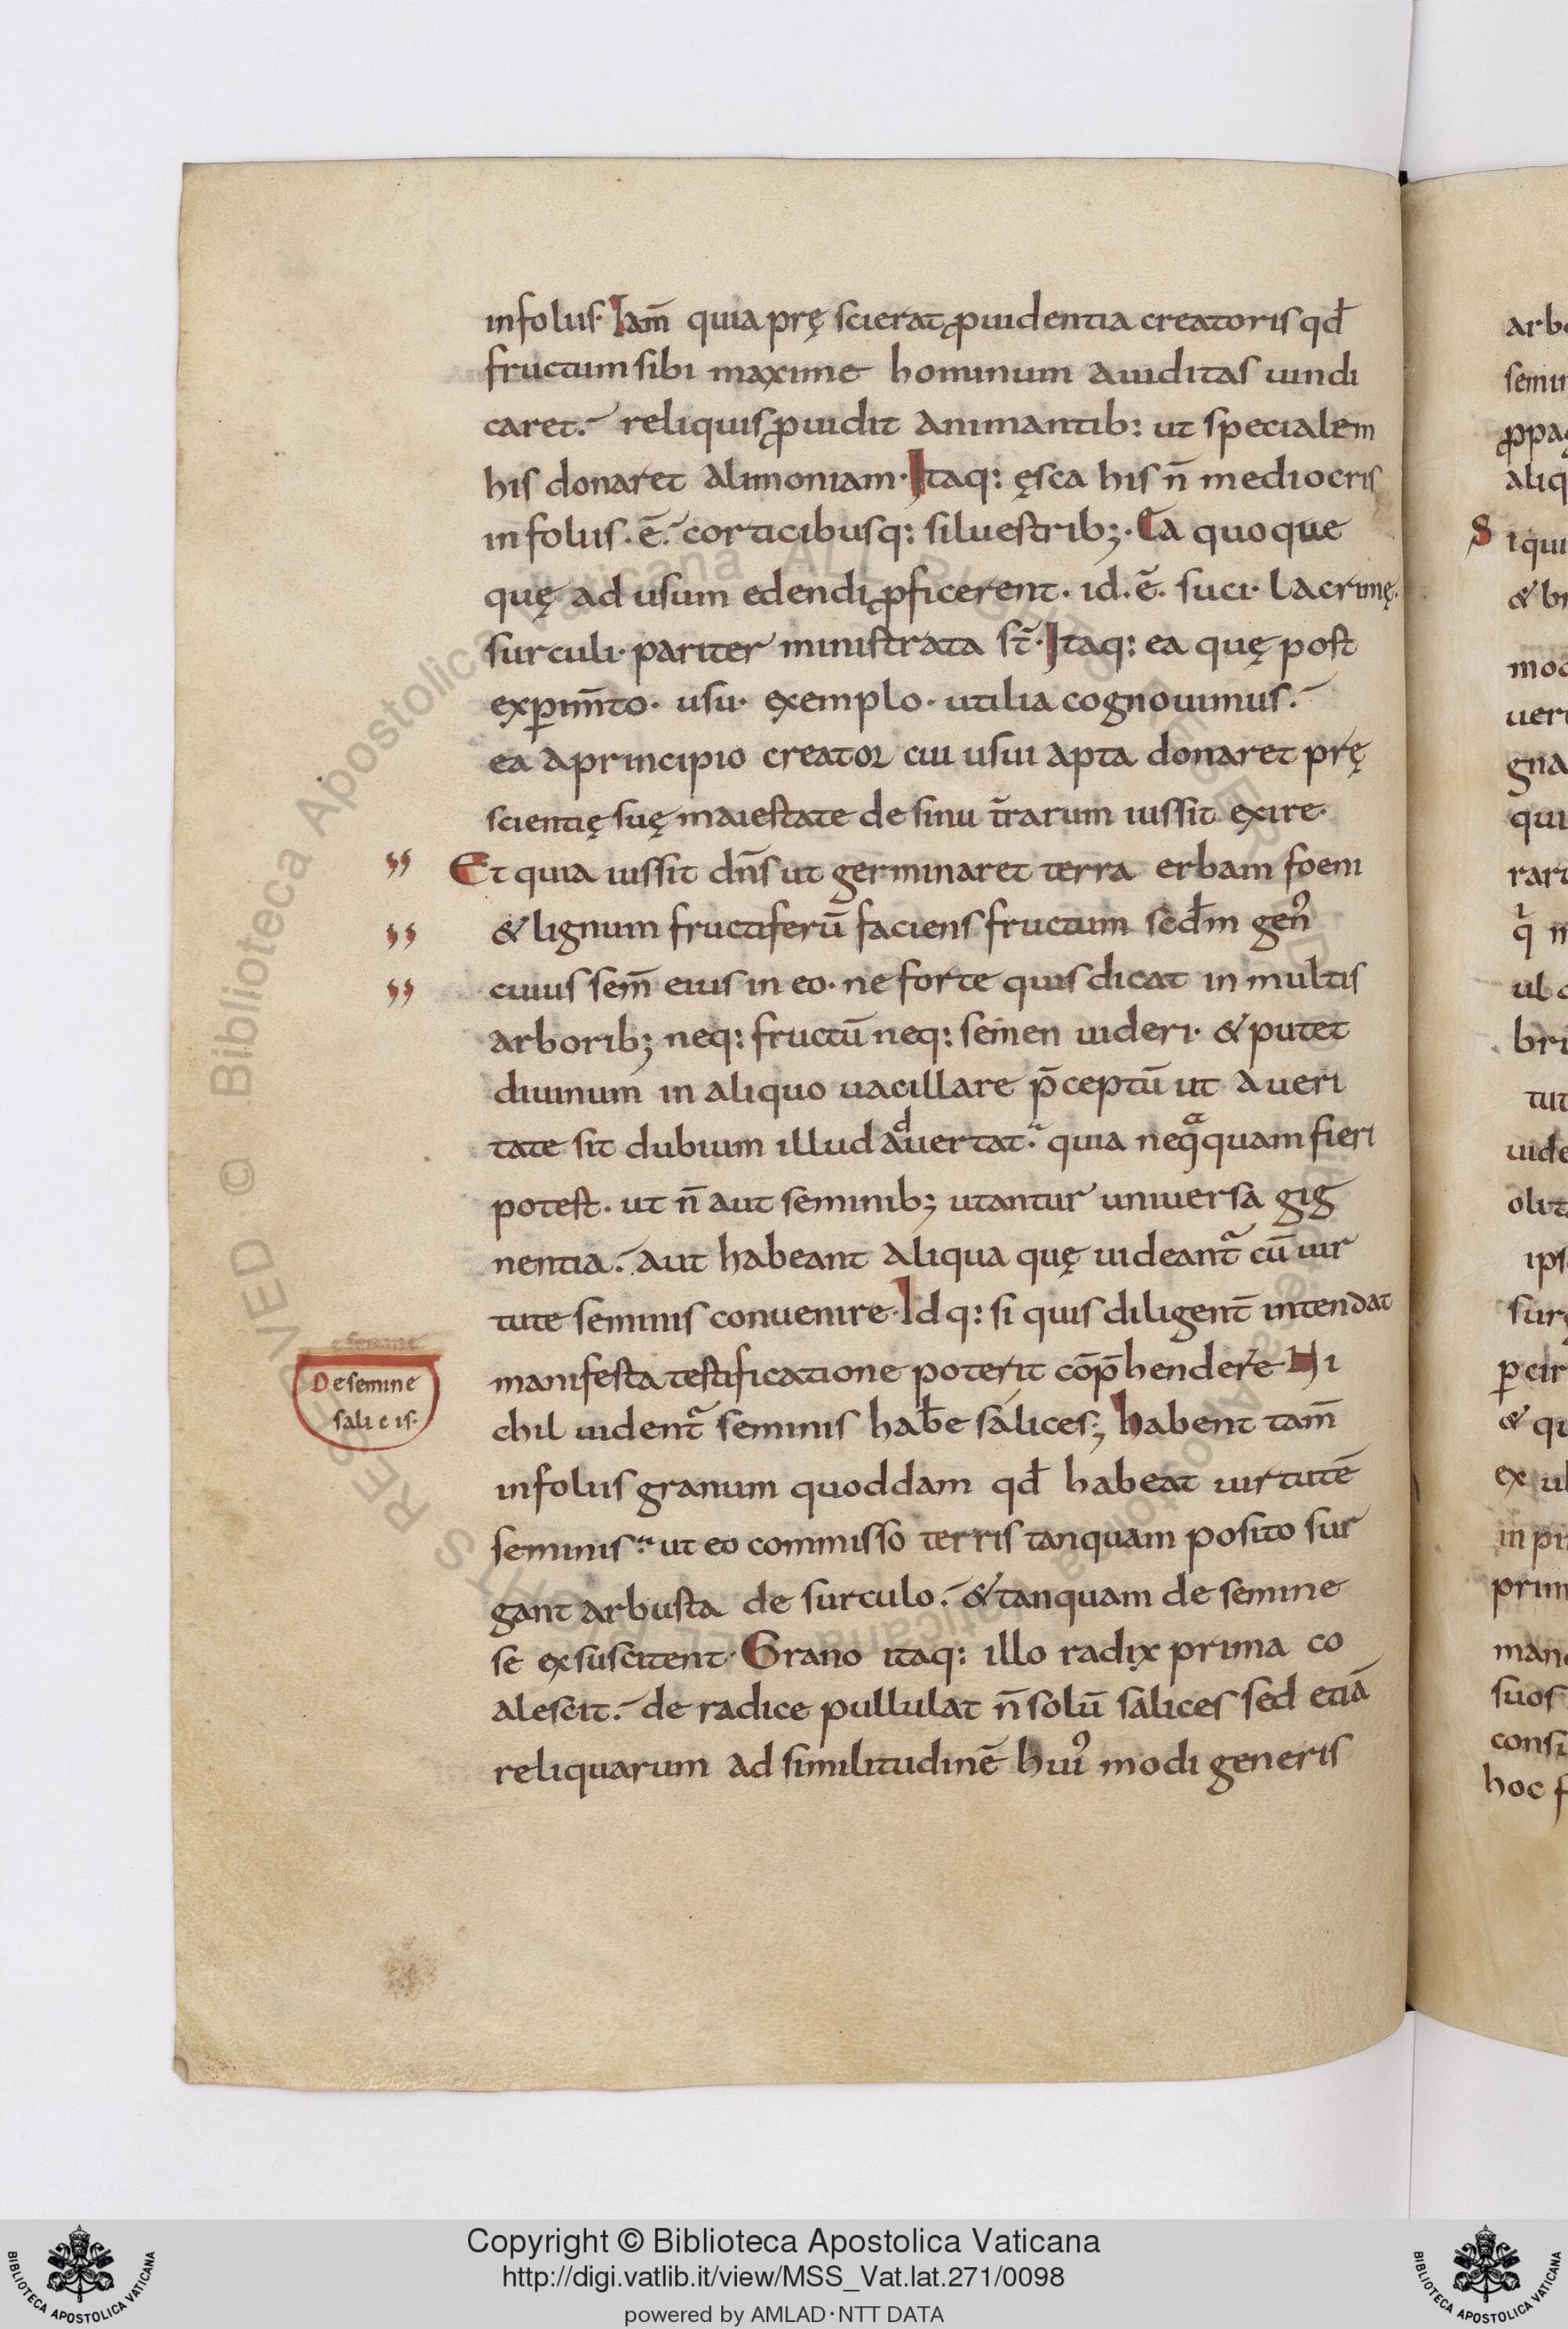 infoliis· Iam̄ quia prę scierat ꝓuidentia creatoris qđ
fructum sibi maxime hominum auiditas uindi
caret. reliquis ꝓuidit animantib: ut specialem
his donaret alimoniam· Itaq: ęsca his n̄ mediocris
in foliis. ē. corticibusq: siluestrib;· Ea quoque
quę ad usum edendi ꝓficerent. id. ē. suci· lacrimę.
surculi· pariter ministrata st̄· Itaq: ea quę post
exꝑim̄to· usu· exemplo· utilia cognouimus.
ea a principio creator cui usui apta donaret prę
scientię suę maiestate de sinu t̄rarum iussit exire·
Et quia iussit dn̄s ut germinaret terra erbam foeni
& lignum fructiferū faciens fructum seđm gen᾽
cuius sem̄ eius in eo· ne forte quis dicat in multis
arborib; neq: fructū neq: semen uideri· & putet
diuinum in aliquo uacillare p̄ceptū ut a ueri
tate sit dubium illud aduertat. quia neqaquam fieri
potest· ut n̄ aut seminib; utantur uniuersa gig
nentia. aut habeant aliqua quę uideant᷑ cū uir
tute seminis conuenire· Idq: si quis diligent̄ intendat
manifesta testificatione poterit cōp̄hendere Ni
chil uident᷑ seminis hab̄e salices; habent tam̄
infoliis granum quoddam qđ habeat uirtutē
seminis. ut eo commisso terris tanquam posito sur
gant arbusta de surculo. & tanquam de semine
se exsuscitent· Grano itaq: illo radix prima co
alescit. de radice pullulat n̄ solū salices sed etiā
reliquarum ad similitudinē hui᾽ modi generis
De semine
salicis·
arb
semi
ꝓpa
aliq
S iqui
& b
mo
uer
gna
qui
rar
q n
ul
bri
tut
uide
olit
ips
sur
ꝑ cir
& qu
ex ul
in pr
prim
man
suos
cons
hoc f
Copyright © Biblioteca Apostolica Vaticana
http://digi.vatlib.it/view/MSS_Vat.lat.271/0098
powered by AMLAD·NTT DATA
BIBLIOTECA APOSTOLICA VATICANA
BIBLIOTECA APOSTOLICA VATICANA